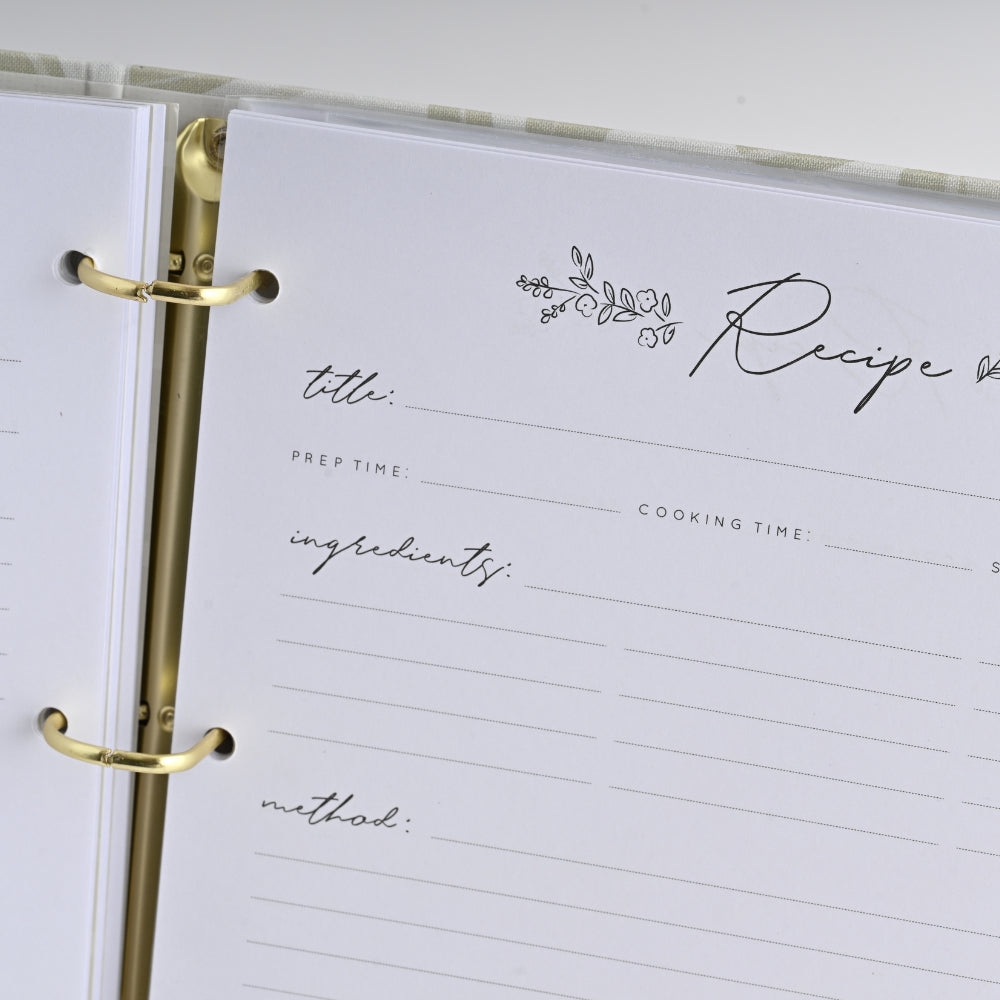 Recipe
title:
PREP TIME: COOKING TIME: S
ingredients:
method: